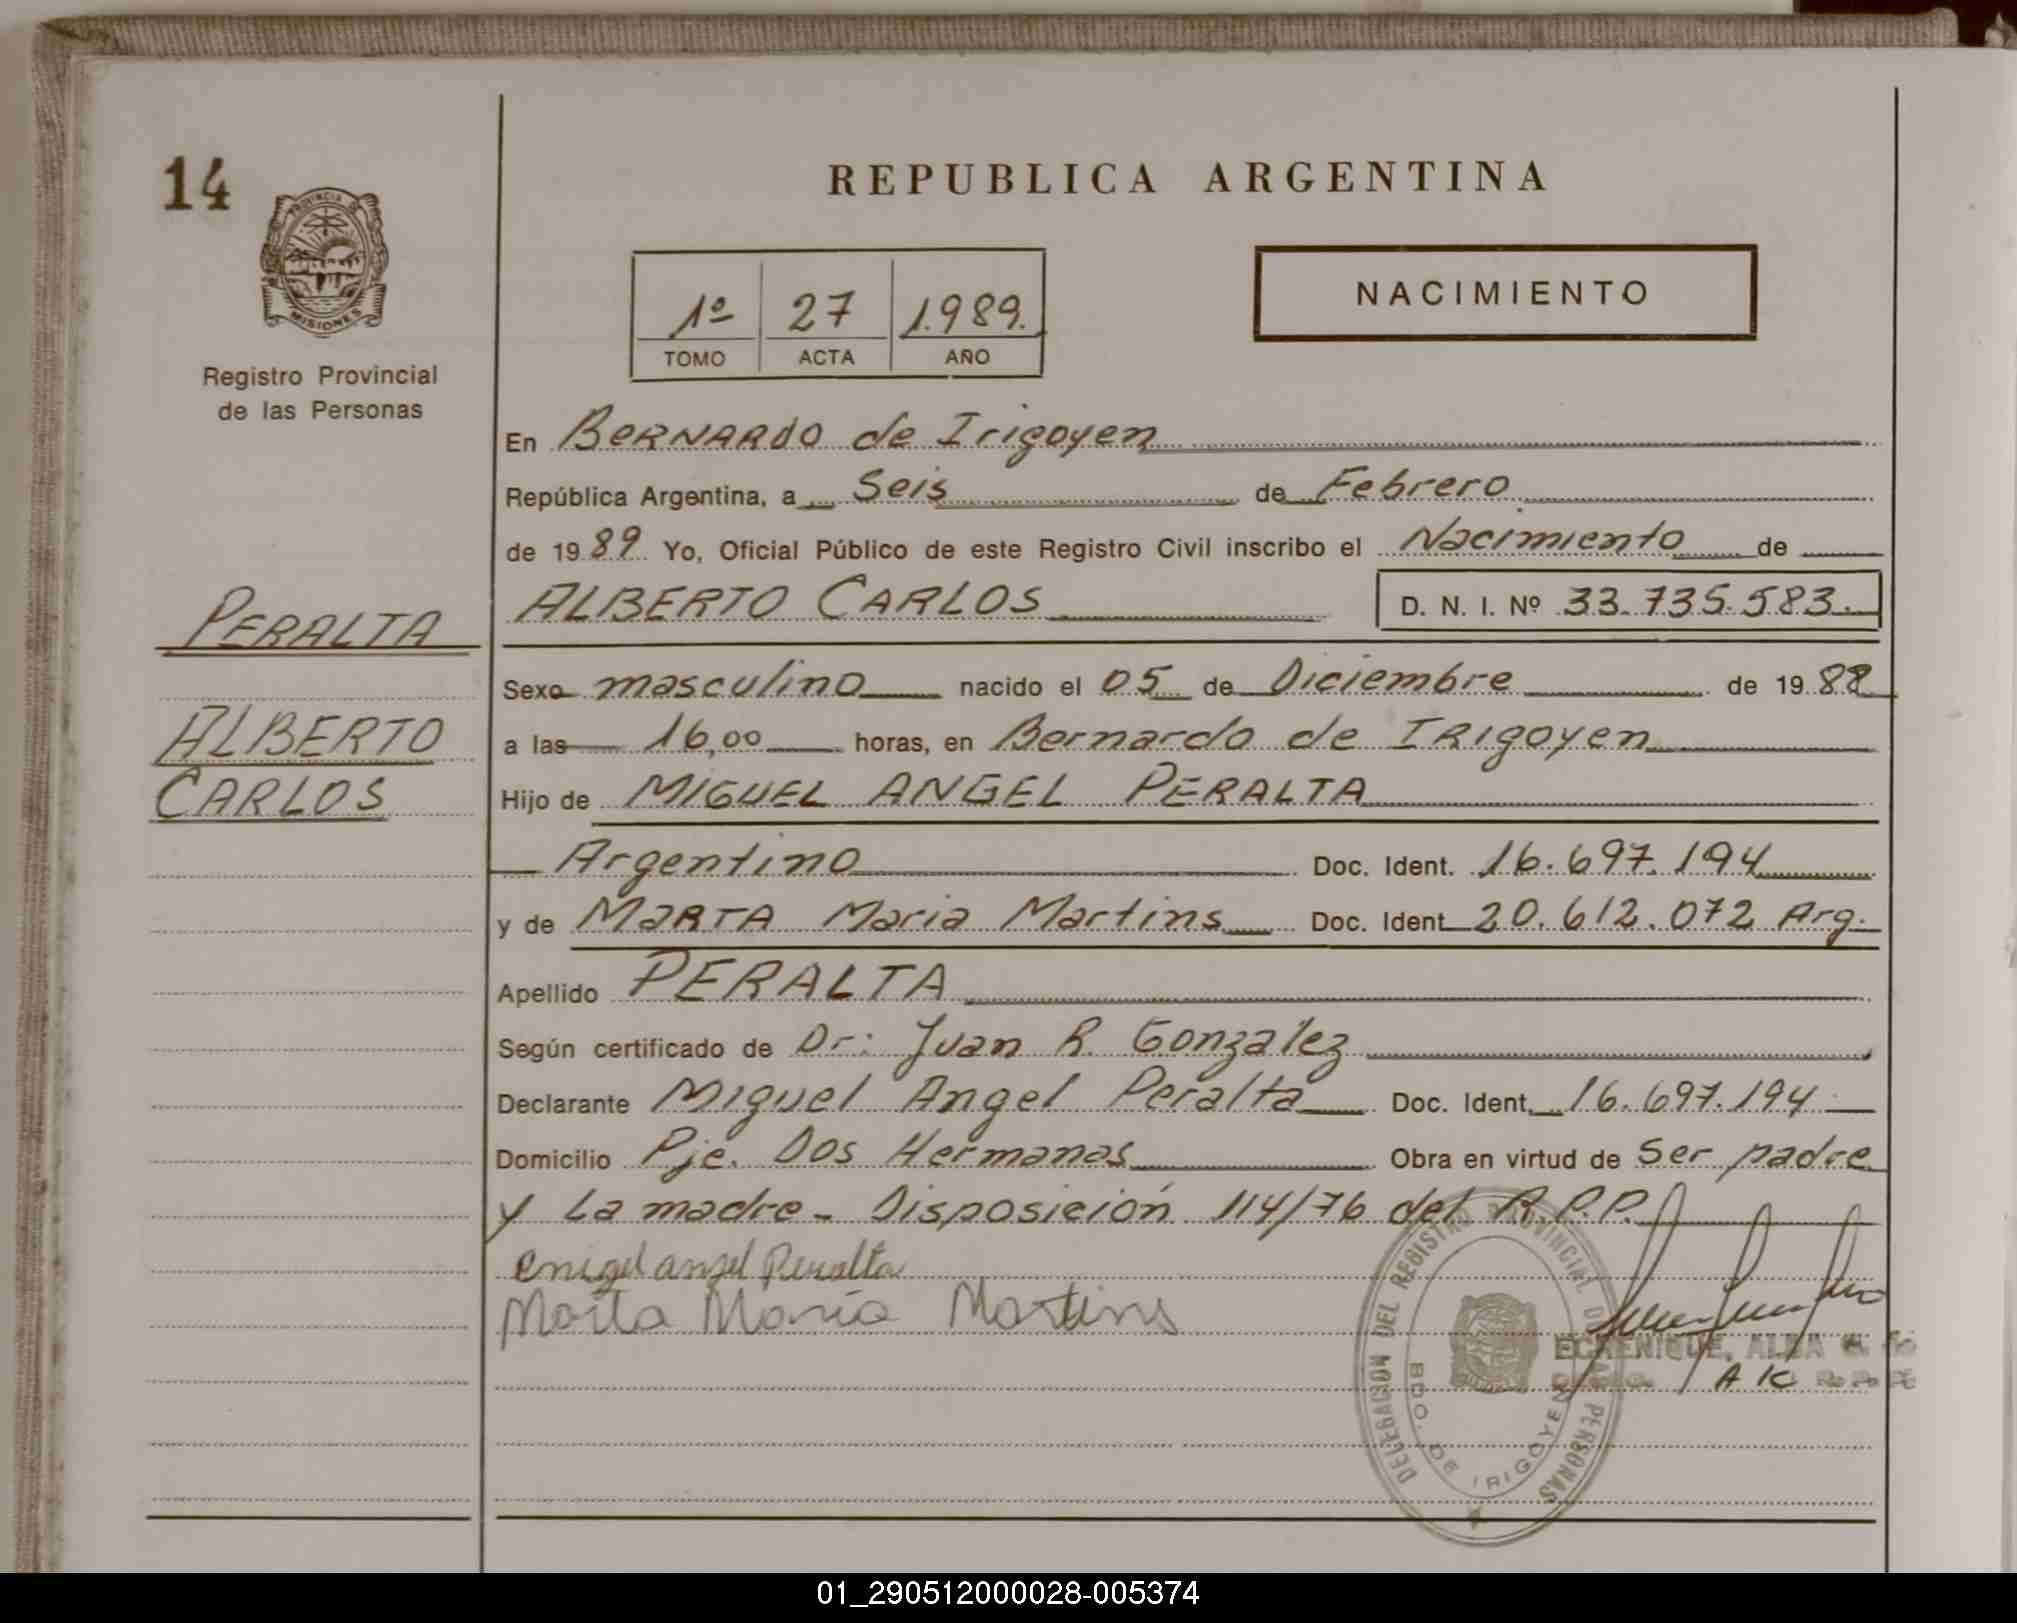 14
REPUBLICA ARGENTINA
PROVINCIA DE
MISIONES
Registro Provincial
de las Personas
1º 27 1.989.
TOMO ACTA AÑO
NACIMIENTO
En Bernardo de Irigoyen
República Argentina, a Seis de Febrero
de 19 89 Yo, Oficial Público de este Registro Civil inscribo el Nacimiento de
ALBERTO CARLOS D. N. I. Nº 33.735.583.
PERALTA
ALBERTO
CARLOS
Sexo masculino nacido el 05 de Diciembre de 19 88
a las 16,00 horas, en Bernardo de Irigoyen
Hijo de MIGUEL ANGEL PERALTA
Argentino Doc. Ident. 16.697.194
y de MARTA Maria Martins Doc. Ident 20.612.072 Arg.
Apellido PERALTA
Según certificado de Dr: Juan R. González
Declarante Miguel Angel Peralta Doc. Ident. 16.697.194
Domicilio Pje. Dos Hermanas Obra en virtud de Ser padre
y La madre - Disposición 114/76 del R.P.P.
Miguel angel Peralta
Marta María Martins
DELEGACION DEL REGISTRO PROVINCIAL DE LAS PERSONAS
BDO. DE IRIGOYEN
ECHENIQUE, ALBA
01_290512000028-005374